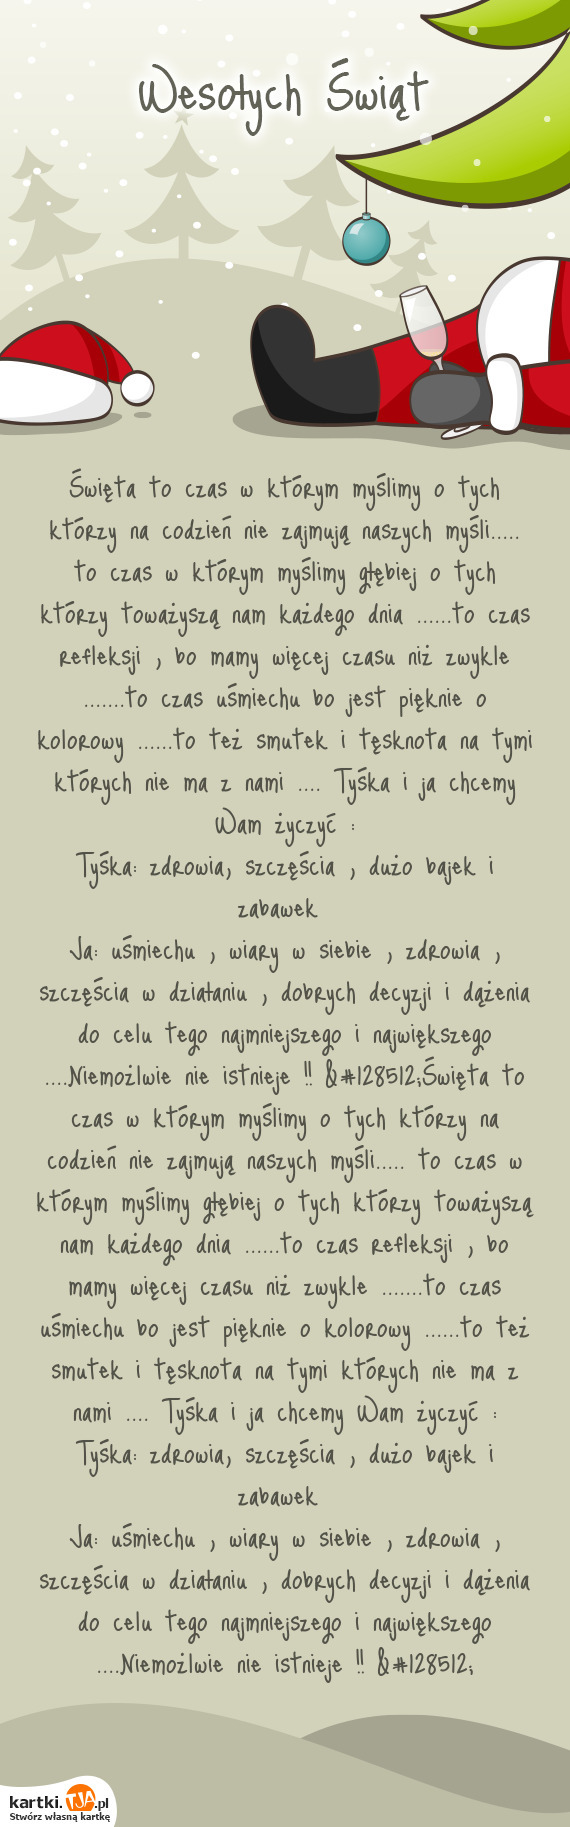 Wesołych Świąt
Święta to czas w którym myślimy o tych
którzy na codzień nie zajmują naszych myśli.....
to czas w którym myślimy głębiej o tych
którzy toważyszą nam każdego dnia ......to czas
refleksji , bo mamy więcej czasu niż zwykle
.......to czas uśmiechu bo jest pięknie o
kolorowy ......to też smutek i tęsknota na tymi
których nie ma z nami .... Tyśka i ja chcemy
Wam życzyć :
Tyśka: zdrowia, szczęścia , dużo bajek i
zabawek
Ja: uśmiechu , wiary w siebie , zdrowia ,
szczęścia w działaniu , dobrych decyzji i dążenia
do celu tego najmniejszego i największego
....Niemożlwie nie istnieje !! &#128512;Święta to
czas w którym myślimy o tych którzy na
codzień nie zajmują naszych myśli..... to czas w
którym myślimy głębiej o tych którzy toważyszą
nam każdego dnia ......to czas refleksji , bo
mamy więcej czasu niż zwykle .......to czas
uśmiechu bo jest pięknie o kolorowy ......to też
smutek i tęsknota na tymi których nie ma z
nami .... Tyśka i ja chcemy Wam życzyć :
Tyśka: zdrowia, szczęścia , dużo bajek i
zabawek
Ja: uśmiechu , wiary w siebie , zdrowia ,
szczęścia w działaniu , dobrych decyzji i dążenia
do celu tego najmniejszego i największego
....Niemożlwie nie istnieje !! &#128512;
kartki.TJA.pl
Stwórz własną kartkę